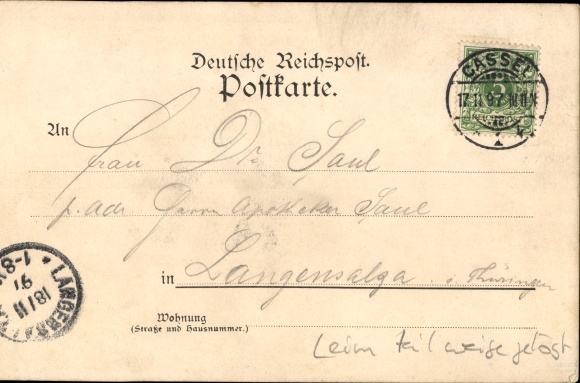 Deutsche Reichspost.
Postkarte.
CASSEL
17.11.97
An Frau Dr. Saul
p. adr. Herrn Apotheker Saul
in Langensalza i. Thüringen
1-8
18/11
97
Wohnung
(Straße und Hausnummer.)
Leim teilweise gelöst